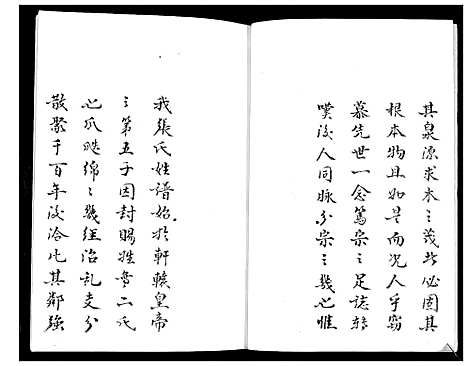 其泉源求本之義者必固其
根本物且如是而况人乎窃
慕先世一念篤宗之足誌转
嘆後人同脉分宗之幾也惟
我張氏姓譜始於軒轅皇帝
之第五子因封賜姓章二氏
也瓜瓞綿之幾經治乱支分
散聚千百年後洽比其鄰強